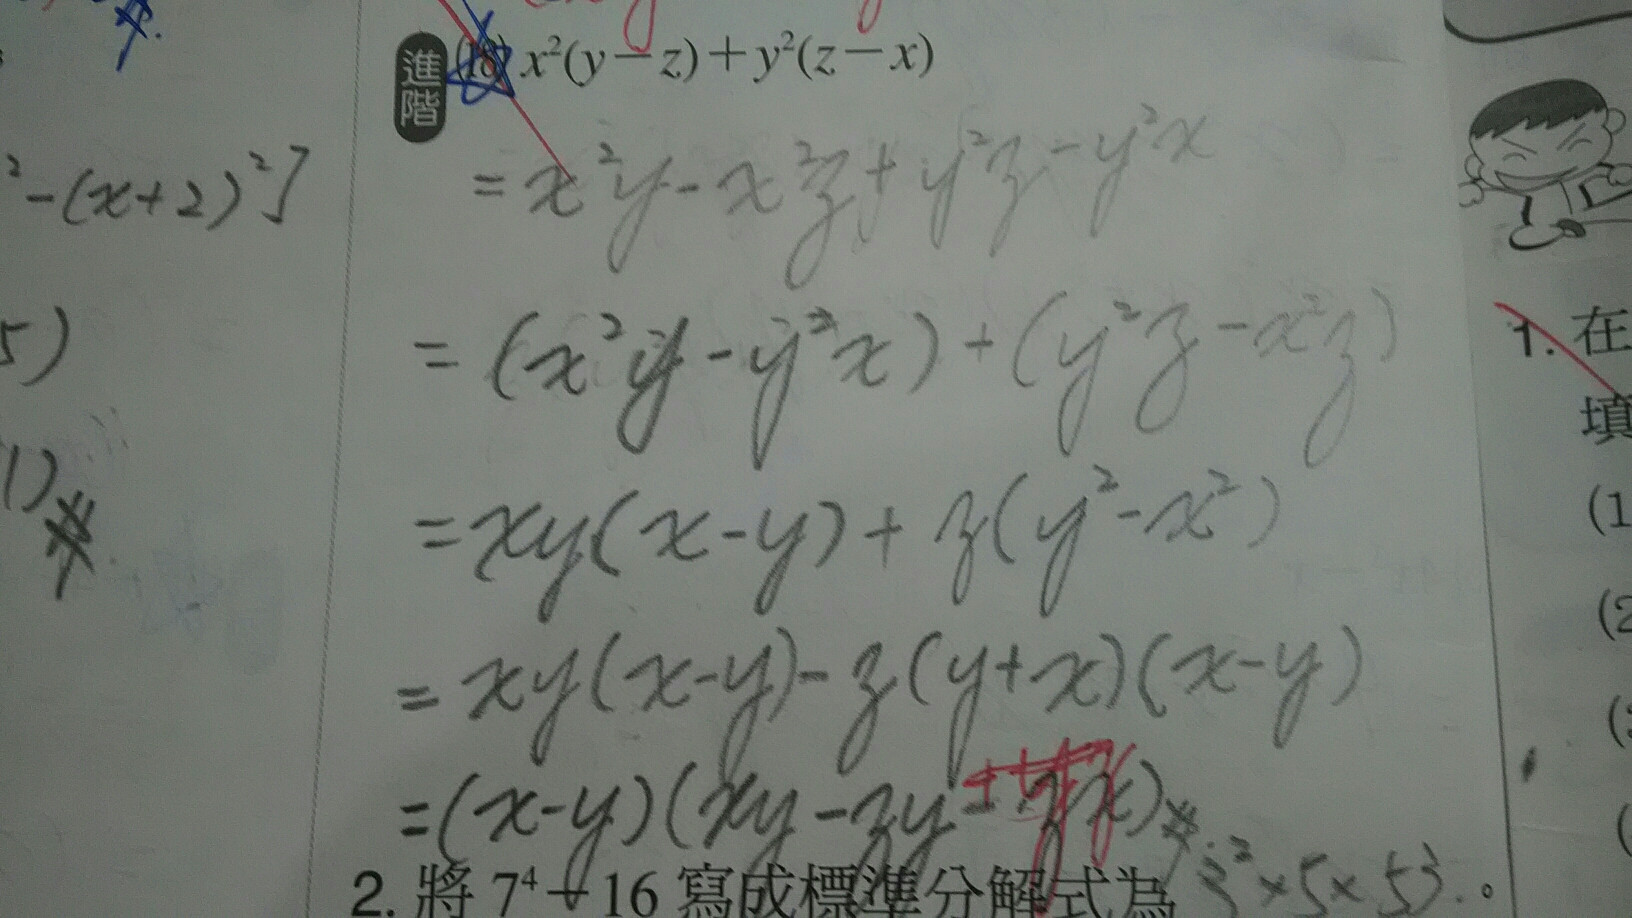 進階 (18) x²(y－z)＋y²(z－x)
= x²y - x²z + y²z - y²x
²-(x+2)²]
= (x²y - y²x) + (y²z - x²z)
5)
= xy(x-y) + z(y²-x²)
1)#
= xy(x-y) - z(y+x)(x-y)
= (x-y)(xy - zy - zx)#
2. 將 7⁴－16 寫成標準分解式為 3²×5×53。
1. 在
填
(1
(2